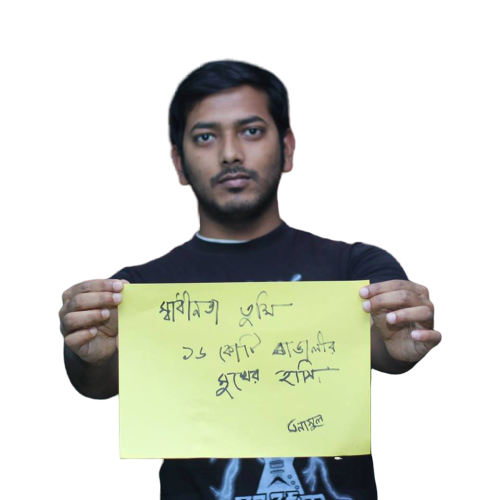 স্বাধীনতা তুমি
১৬ কোটি বাঙালীর
মুখের হাসি
এনামুল